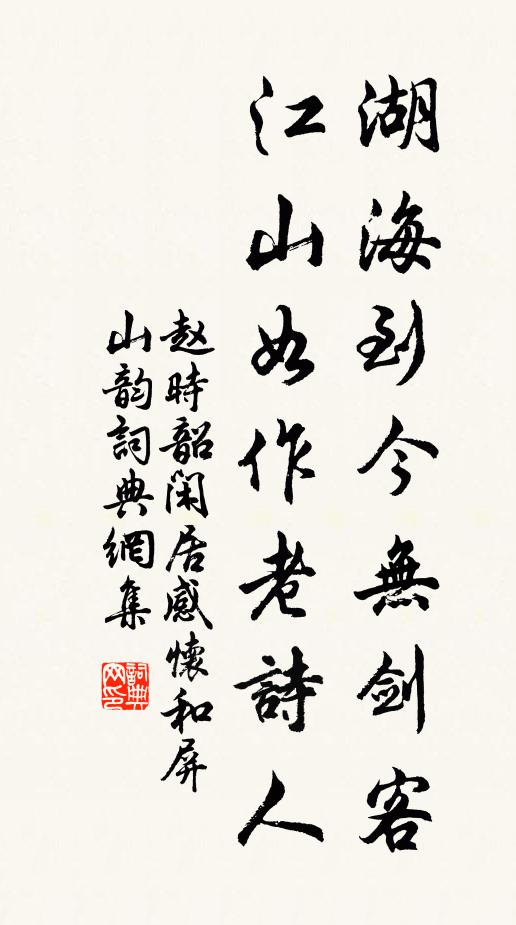 湖海到今無剑客
江山如作老詩人
赵時韶闲居感懷和屏
山韵詞典網集
詞典
网印